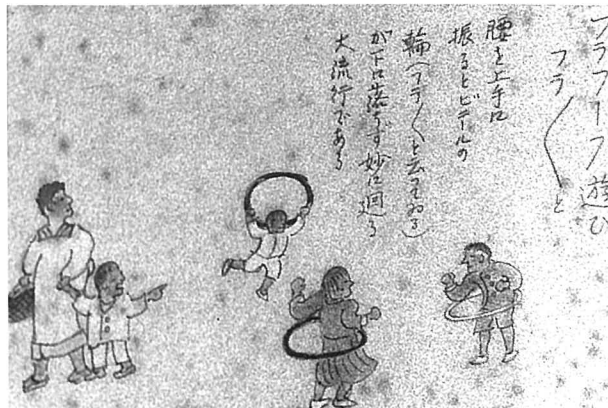 フラフープ遊び
フラ〱と
腰を上手に
振るとビニールの
輪(フラ〱と云つてゐる)
が下に落ちず妙に廻る
大流行である